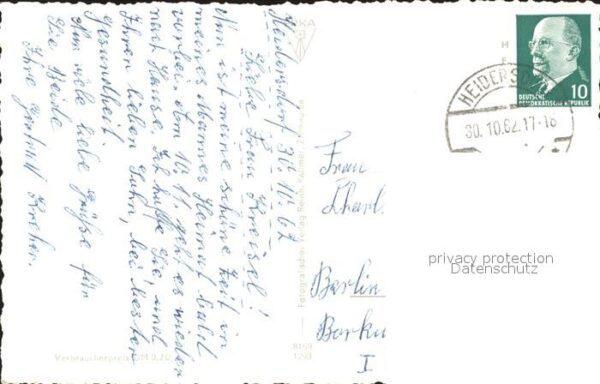 Heidersdorf 30.10.62
Liebe Frau Kreisel!
Nun ist meine schöne Zeit in
meines Mannes Heimat bald
vorbei. Am 10.11. geht es wieder
nach Hause. Ich hoffe Sie und
Ihren lieben Sohn, bei bester
Gesundheit
Nun viele liebe Grüße für
Sie Beide
Ihre Gertrud
Frau
Charl.
Berlin
I
HEIDERSD
30.10.62.17-18
10
DEUTSCHE
DEMOKRATISCHE REPUBLIK
privacy protection
Datenschutz
Verbraucherpreis DM 0,20